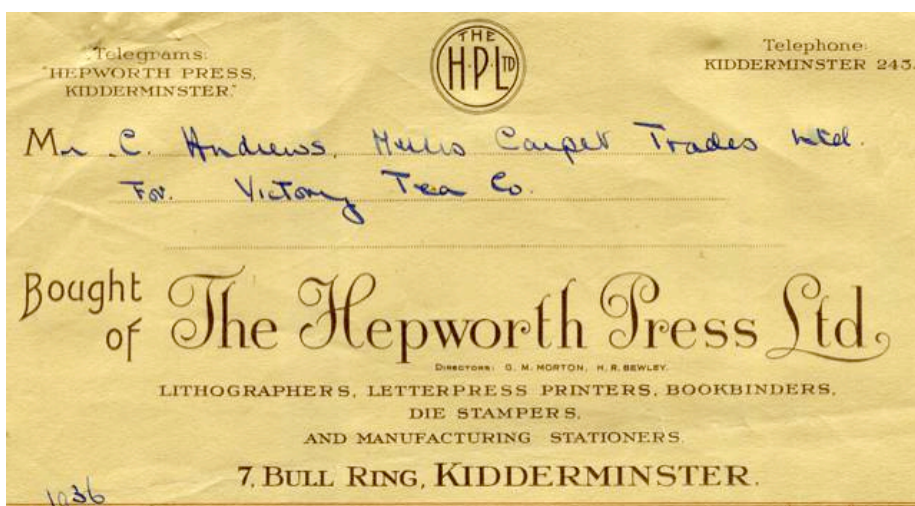 "Telegrams:
"HEPWORTH PRESS,
KIDDERMINSTER."
THE
H·P·LTD
Telephone:
KIDDERMINSTER 243.
Mr C. Andrews, Carpet Trades Ltd.
For. Victory Tea Co.
Bought
of The Hepworth Press Ltd.
DIRECTORS: G. M. MORTON, H. R. BEWLEY.
LITHOGRAPHERS, LETTERPRESS PRINTERS, BOOKBINDERS,
DIE STAMPERS,
AND MANUFACTURING STATIONERS.
7, BULL RING, KIDDERMINSTER.
1936